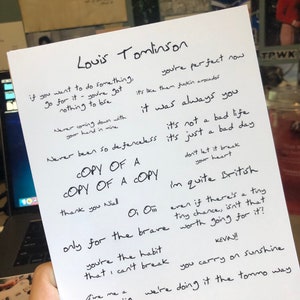 Louis Tomlinson
if you want to do something,
go for it - you've got
nothing to lose
you're perfect now
it's like them fuckin avocados
Never coming down with
your hand in mine
it was always you
Never been so defenceless
it's not a bad life
it's just a bad day
COPY OF A
COPY OF A COPY
don't let it break
your heart
Im quite British
thank you Niall
Oi Oii
even if there's a tiny
tiny chance, isn't that
worth going for it?!
only for the brave
KEVIN!!
you're the habit
that i can't break
you carry on sunshine
give me a
we're doing it the tommo way